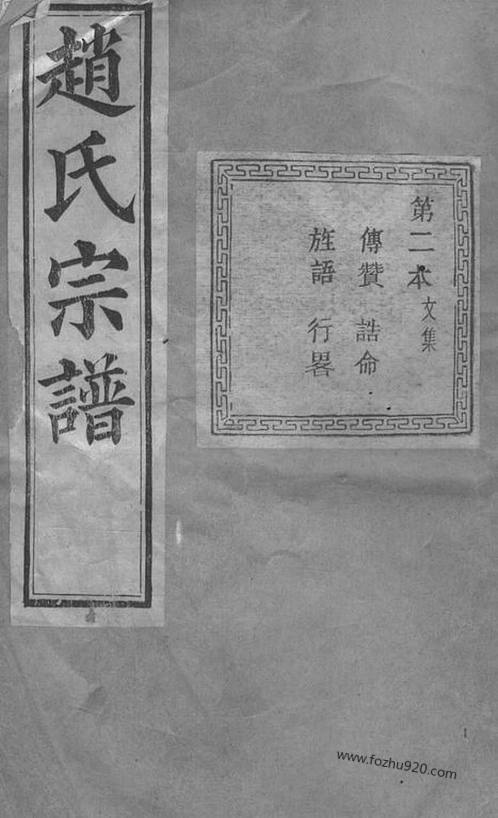 趙氏宗譜
第二本 文集
傳贊 誥命
旌語 行畧
1
www.fozhu920.com